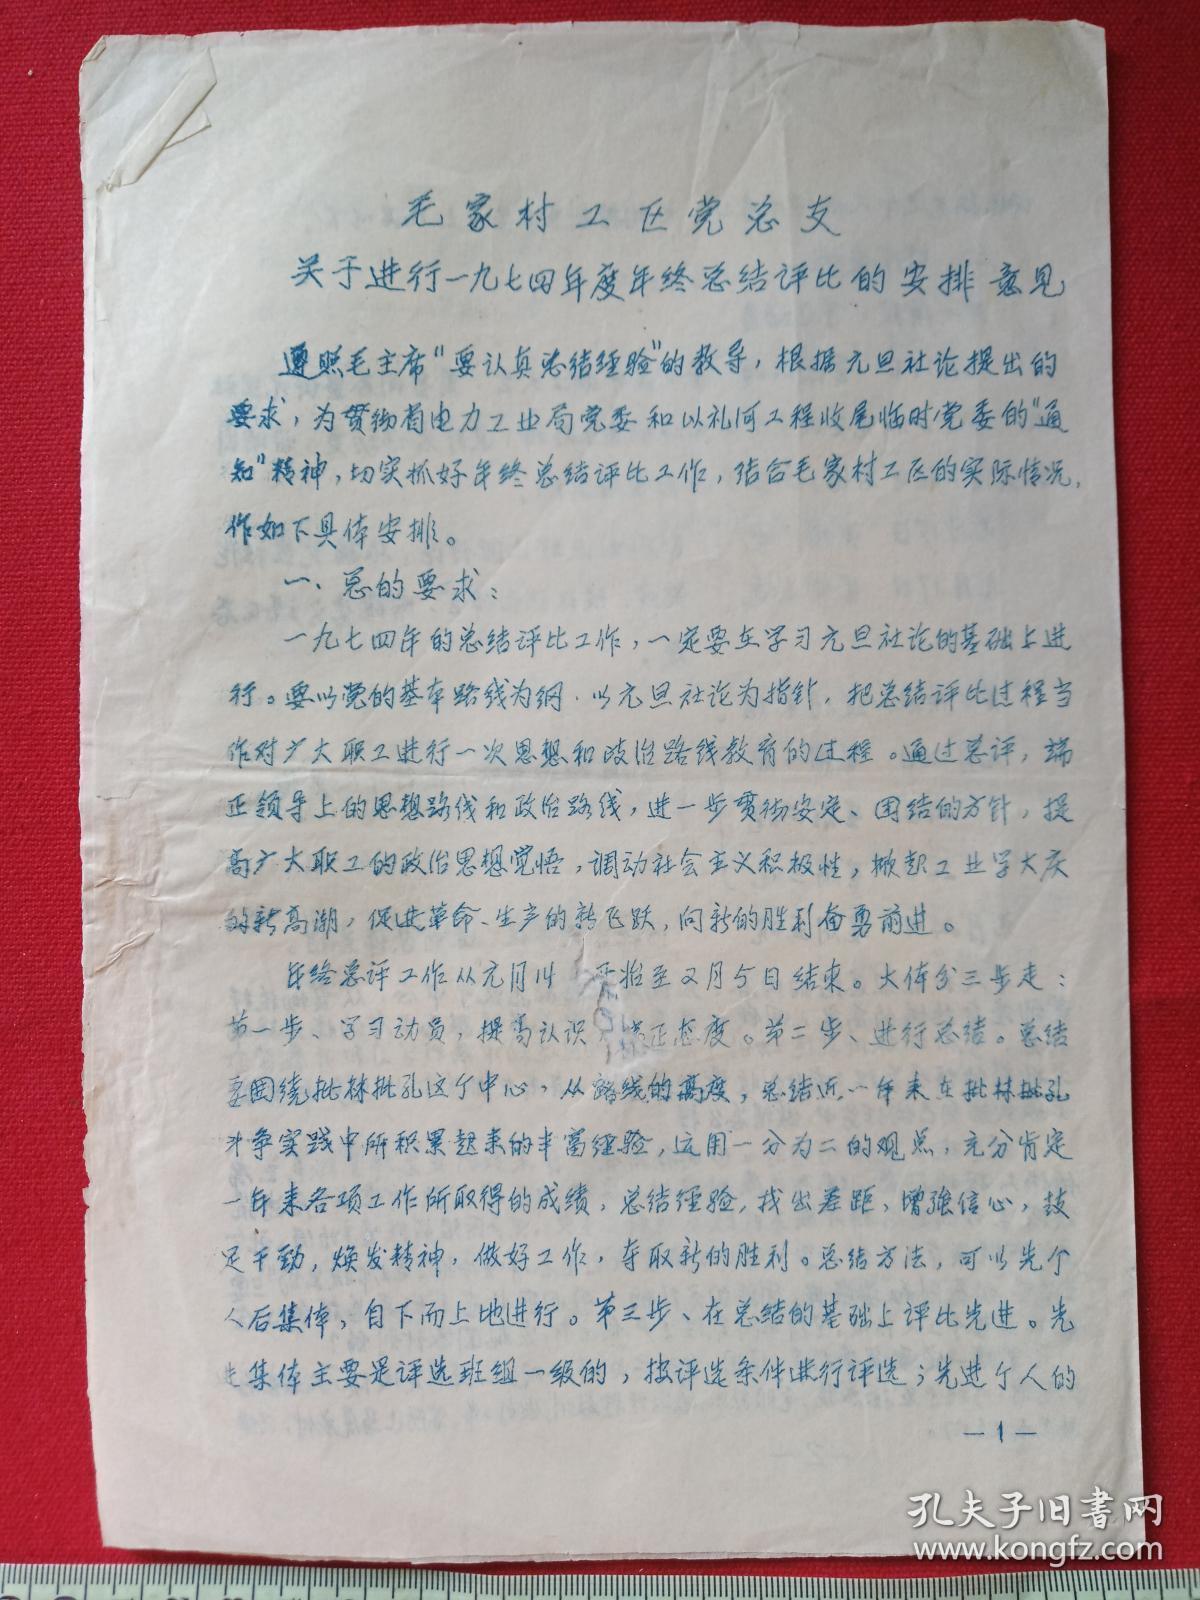 毛家村工区党总支
关于进行一九七四年度年终总结评比的安排意见
遵照毛主席"要认真总结经验"的教导，根据元旦社论提出的
要求，为贯彻省电力工业局党委和以礼河工程收尾临时党委的"通
知"精神，切实抓好年终总结评比工作，结合毛家村工区的实际情况，
作如下具体安排。
一、总的要求：
一九七四年的总结评比工作，一定要在学习元旦社论的基础上进
行。要以党的基本路线为纲，以元旦社论为指针，把总结评比过程当
作对广大职工进行一次思想和政治路线教育的过程。通过总评，端
正领导上的思想路线和政治路线，进一步贯彻安定、团结的方针，提
高广大职工的政治思想觉悟，调动社会主义积极性，掀起工业学大庆
的新高潮，促进革命、生产的新飞跃，向新的胜利奋勇前进。
年终总评工作从元月14 开始至2月5日结束。大体分三步走：
第一步、学习动员，提高认识 端正态度。第二步、进行总结。总结
要围绕批林批孔这个中心，从路线的高度，总结近一年来在批林批孔
斗争实践中所积累起来的丰富经验，运用一分为二的观点，充分肯定
一年来各项工作所取得的成绩，总结经验，找出差距，增强信心，鼓
足干劲，焕发精神，做好工作，夺取新的胜利。总结方法，可以先个
人后集体，自下而上地进行。第三步、在总结的基础上评比先进。先
进集体主要是评选班组一级的，按评选条件进行评选；先进个人的
—1—
孔夫子旧书网
www.kongfz.com